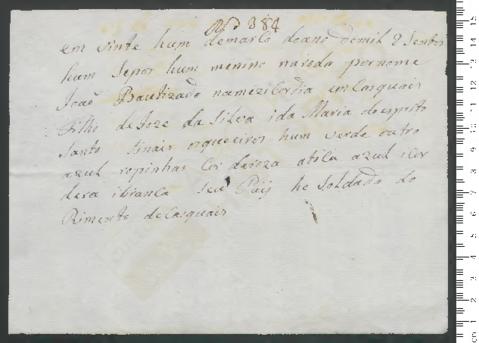 Nº 384
em vinte hum demarco doano demil 8 Sentos
hum Sepos hum menino naroda pornome
Joaõ Bautizado nameziCordia emCasquais
Filho deJoze da Silva ida Maria doesprito
Santo Sinais osqueiros hum verde outro
azul ropinhas Cor daroza atilca azul iCor
dera ibranca Seu Paij he Soldado do
Rimento deCasquais